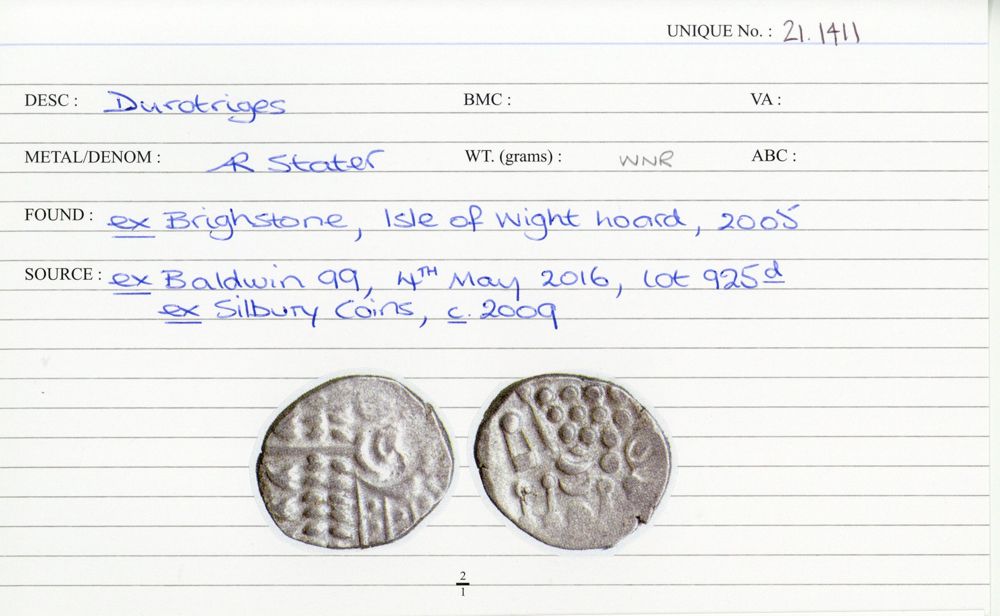 UNIQUE No. : 21.1411
DESC : Durotriges BMC : VA :
METAL/DENOM : AR Stater WT. (grams) : WNR ABC :
FOUND : ex Brighstone, Isle of Wight hoard, 2005
SOURCE : ex Baldwin 99, 4TH May 2016, lot 925d
ex Silbury Coins, c. 2009
2
1